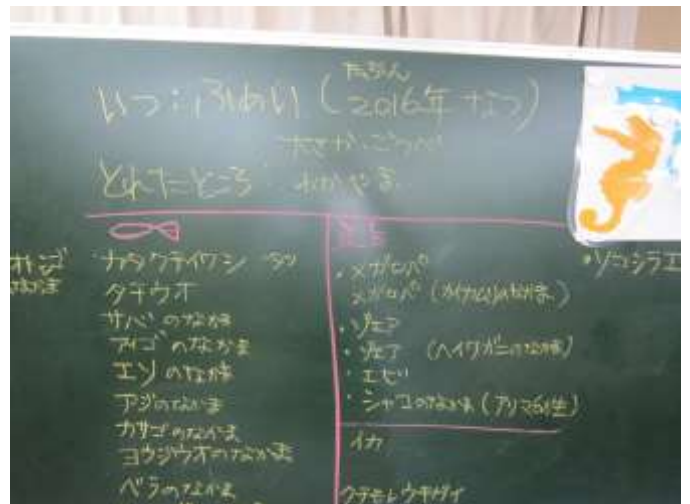 たぶん
いつ：ふめい（2016年なつ）
とれたところ わかやま
カタクチイワシ
タチウオ
サバのなかま
アイゴのなかま
エソのなかま
アジのなかま
カサゴのなかま
ヨウジウオのなかま
ベラのなかま
・メガロパ
メガロパ（カイカムリのなかま）
・ゾエア
・ゾエア（ヘイケガニのなかま）
・エビ
・シャコのなかま（アリマ幼生）
イカ
クチキレウキガイ
・ソコシラエ